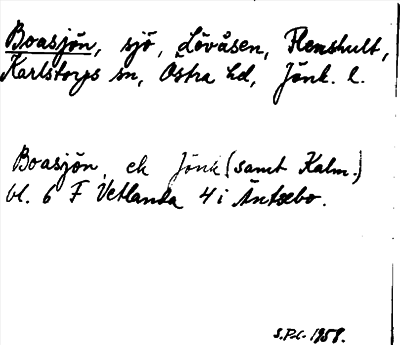 Boasjön, sjö, Lövåsen, Flenshult,
Karlstorps sn, Östra hd, Jönk. l.
Boasjön, ek Jönk (samt Kalm.)
bl. 6 F Vetlanda 4 i Äntsebo.
1958.